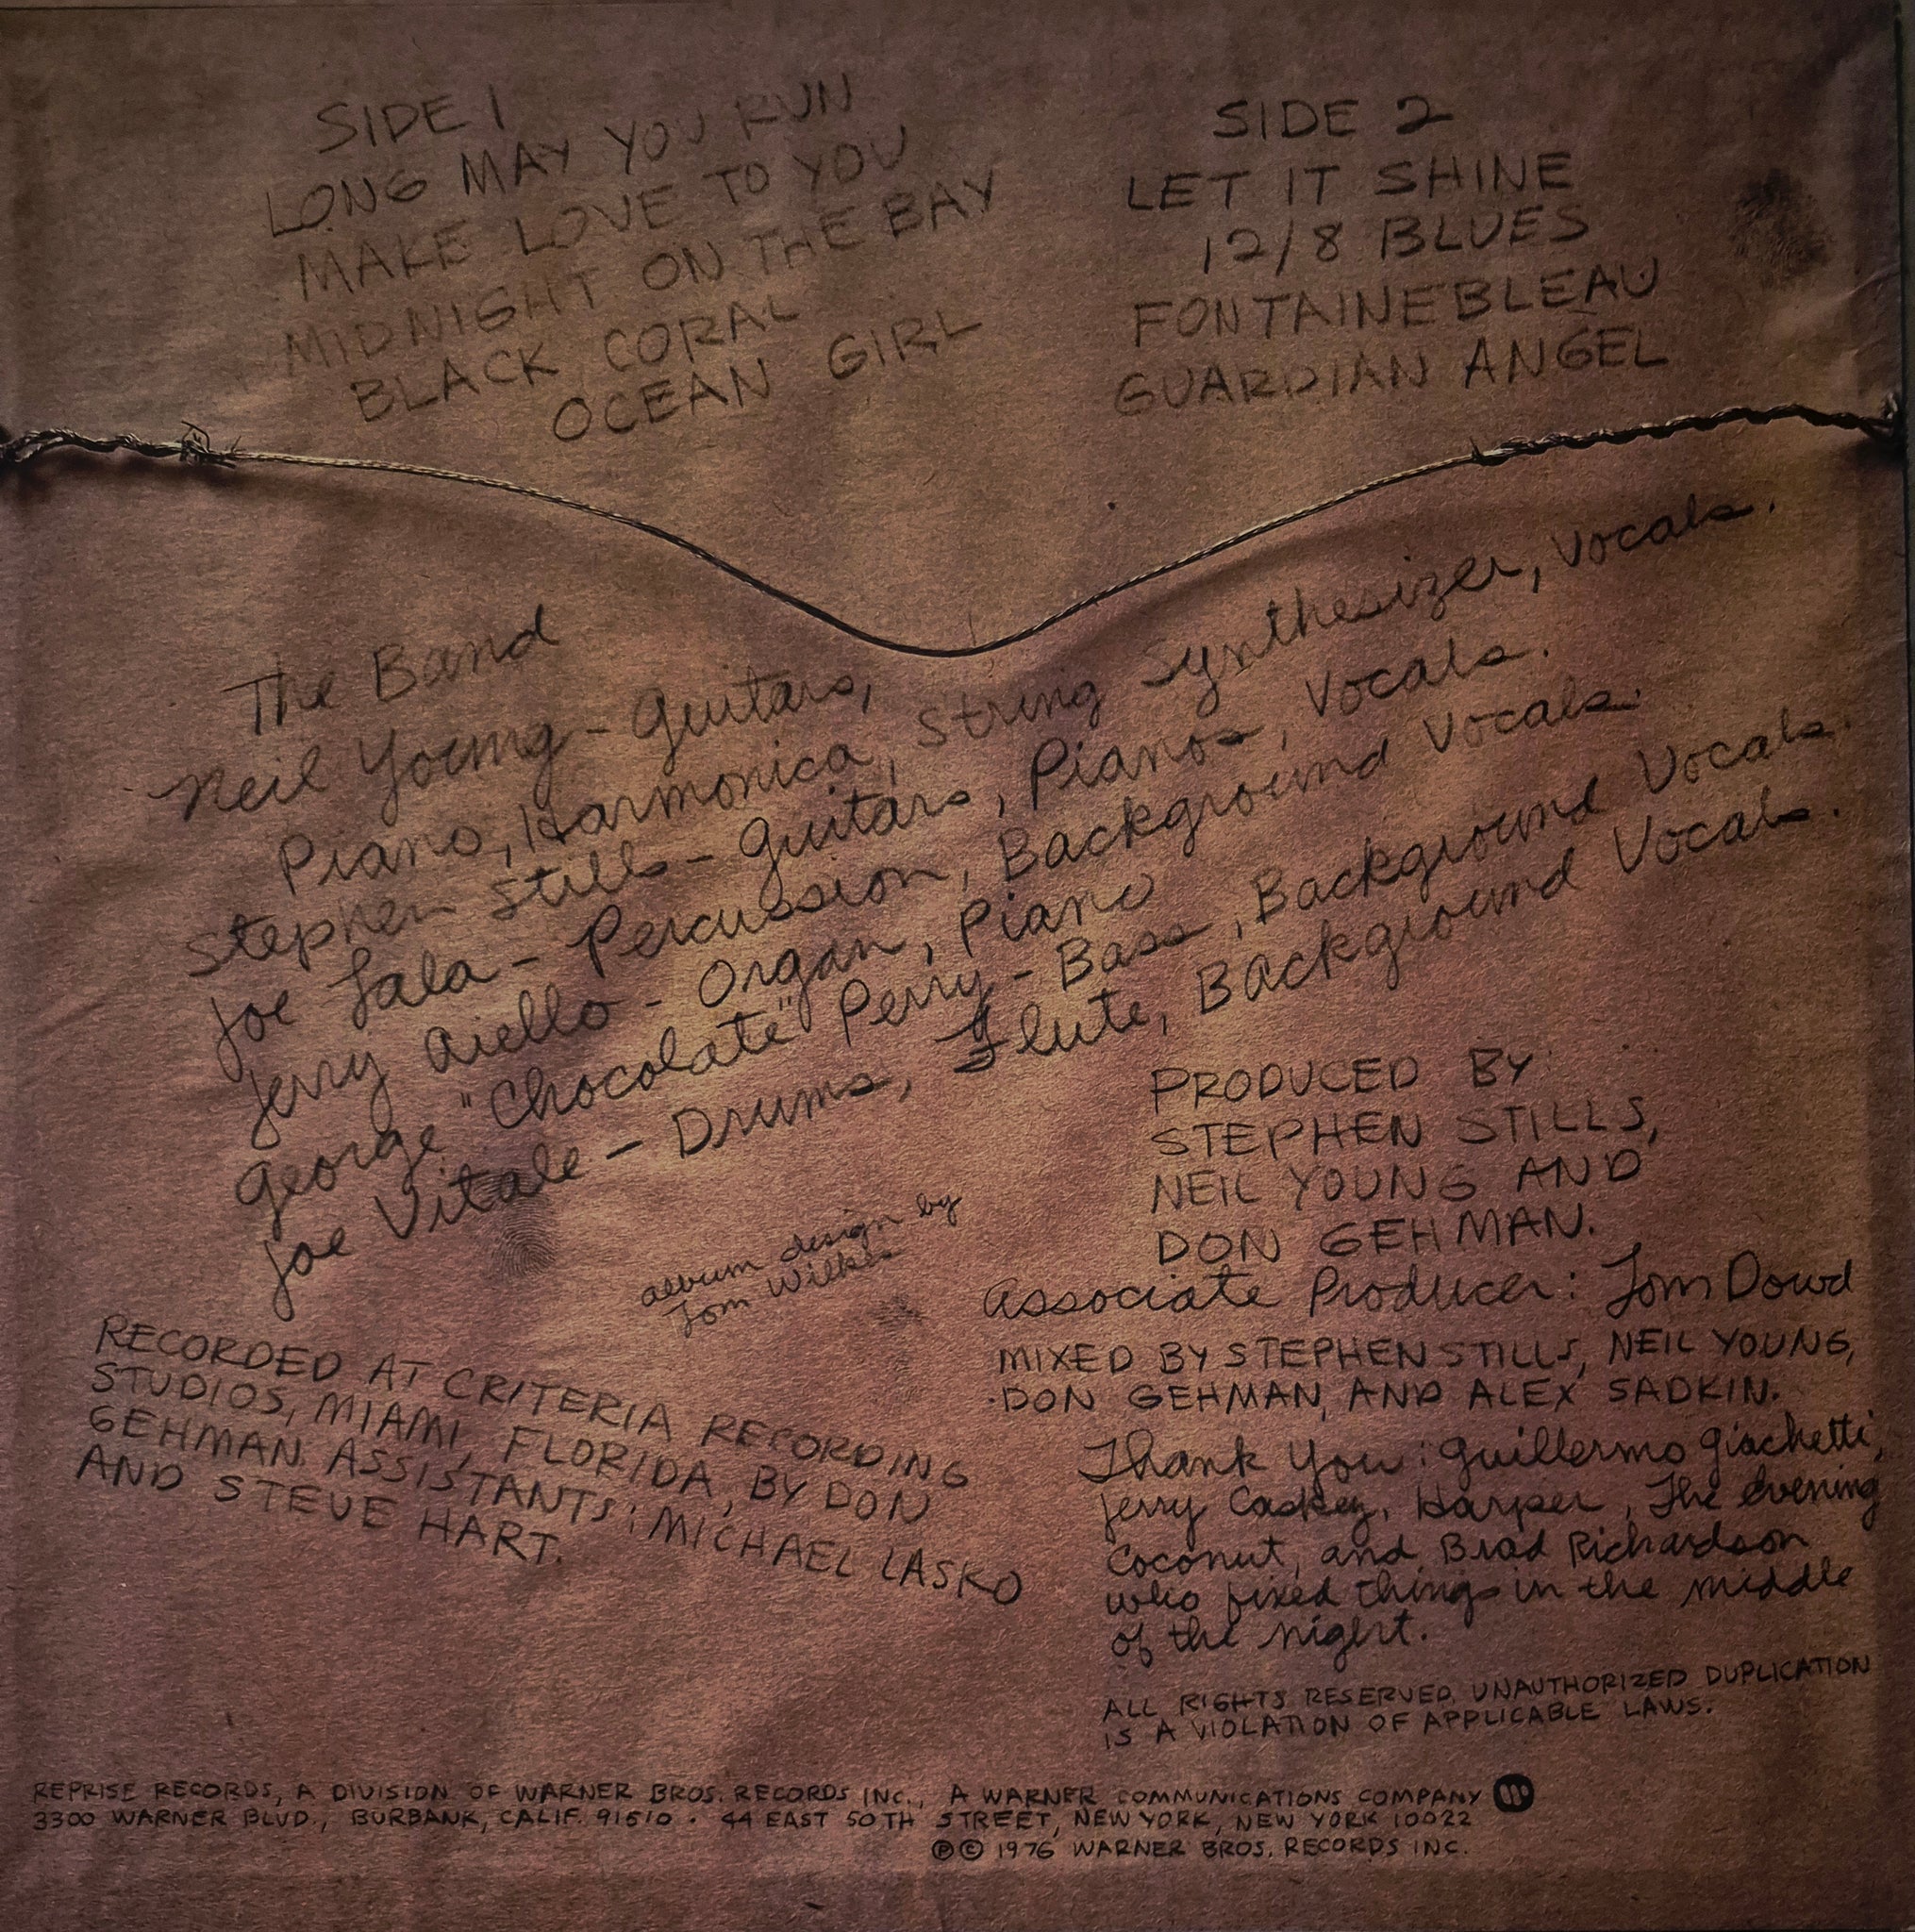 SIDE 1
LONG MAY YOU RUN
MAKE LOVE TO YOU
MIDNIGHT ON THE BAY
BLACK CORAL
OCEAN GIRL
SIDE 2
LET IT SHINE
12/8 BLUES
FONTAINEBLEAU
GUARDIAN ANGEL
The Band
Neil Young - Guitars,
Piano, Harmonica, String Synthesizer, Vocals.
Stephen Stills - Guitars, Pianos, Vocals.
Joe Lala - Percussion, Background Vocals.
Jerry Aiello - Organ, Piano
George "Chocolate" Perry - Bass, Background Vocals.
Joe Vitale - Drums, Flute, Background Vocals.
album design by
Tom Wilkes
PRODUCED BY:
STEPHEN STILLS,
NEIL YOUNG AND
DON GEHMAN.
Associate Producer: Tom Dowd
MIXED BY STEPHEN STILLS, NEIL YOUNG,
DON GEHMAN, AND ALEX SADKIN.
RECORDED AT CRITERIA RECORDING
STUDIOS, MIAMI, FLORIDA, BY DON
GEHMAN. ASSISTANTS: MICHAEL LASKO
AND STEVE HART.
Thank You: Guillermo Giachetti,
Jerry Caskey, Harper, The Evening
Coconut, and Brad Richardson
who fixed things in the middle
of the night.
ALL RIGHTS RESERVED. UNAUTHORIZED DUPLICATION
IS A VIOLATION OF APPLICABLE LAWS.
REPRISE RECORDS, A DIVISION OF WARNER BROS. RECORDS INC., A WARNER COMMUNICATIONS COMPANY
3300 WARNER BLVD., BURBANK, CALIF. 91510 · 44 EAST 50TH STREET, NEW YORK, NEW YORK 10022
℗ © 1976 WARNER BROS. RECORDS INC.